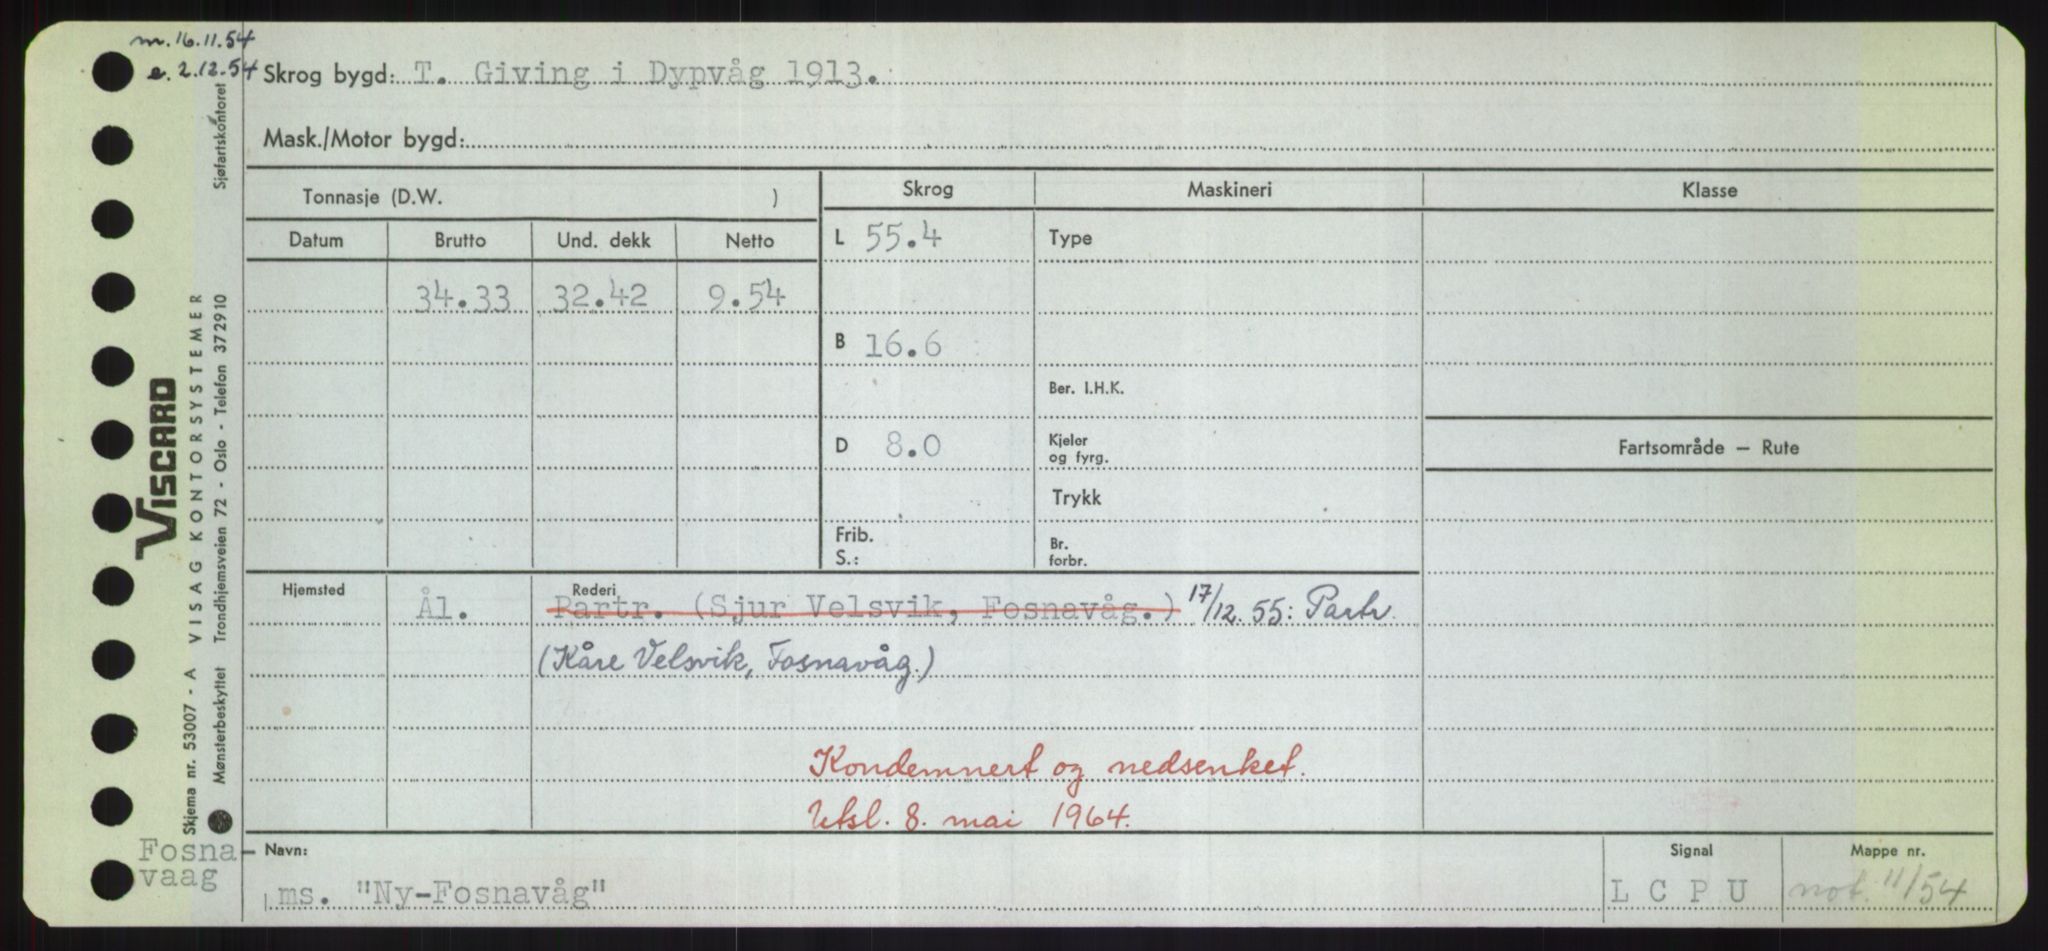 m. 16.11.54
e. 2.12.54
Skrog bygd: T. Giving i Dypvåg 1913.
Mask./Motor bygd:
Tonnasje (D.W. )
Skrog
Maskineri
Klasse
Datum Brutto Und. dekk Netto
L 55.4
Type
34.33 32.42 9.54
B 16.6
Ber. I.H.K.
D 8.0
Kjeler
og fyrg.
Fartsområde – Rute
Trykk
Frib.
S.:
Br.
forbr.
Hjemsted
Ål.
Rederi
Partr. (Sjur Velsvik, Fosnavåg.) 17/12.55: Partr.
(Kåre Velsvik, Fosnavåg.)
Kondemnert og nedsenket.
Utsl. 8. mai 1964.
Fosna-
vaag
Navn:
ms. "Ny-Fosnavåg"
Signal
L C P U
Mappe nr.
not. 11/54
VISCARD
Skjema nr. 53007 - A VISAG KONTORSYSTEMER
Mønsterbeskyttet Trondhjemsveien 72 - Oslo - Telefon 372910
Sjøfartskontoret